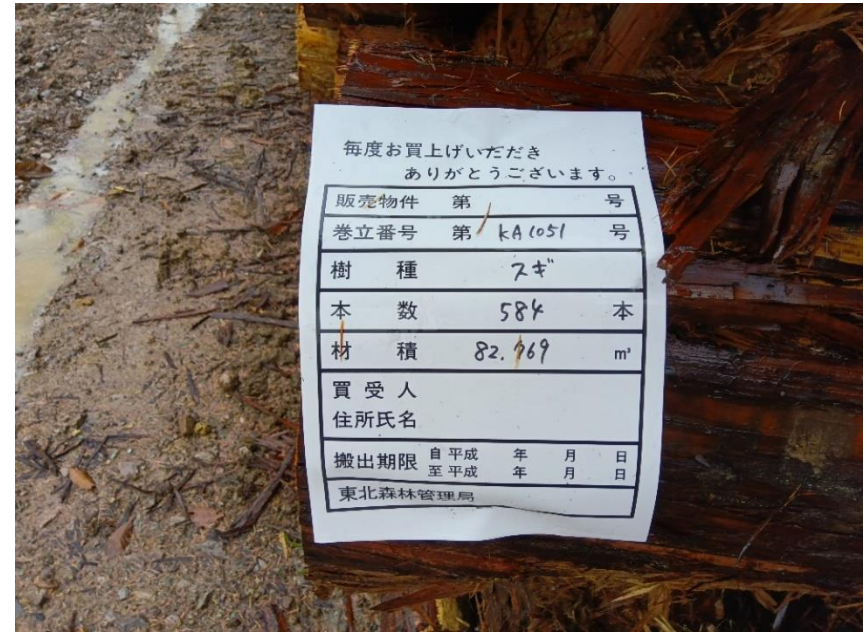 毎度お買上げいただき
ありがとうございます。
販売物件 第 号
巻立番号 第 KA1051 号
樹種 スギ
本数 584 本
材積 82.769 m³
買受人
住所氏名
搬出期限 自平成 年 月 日
至平成 年 月 日
東北森林管理局